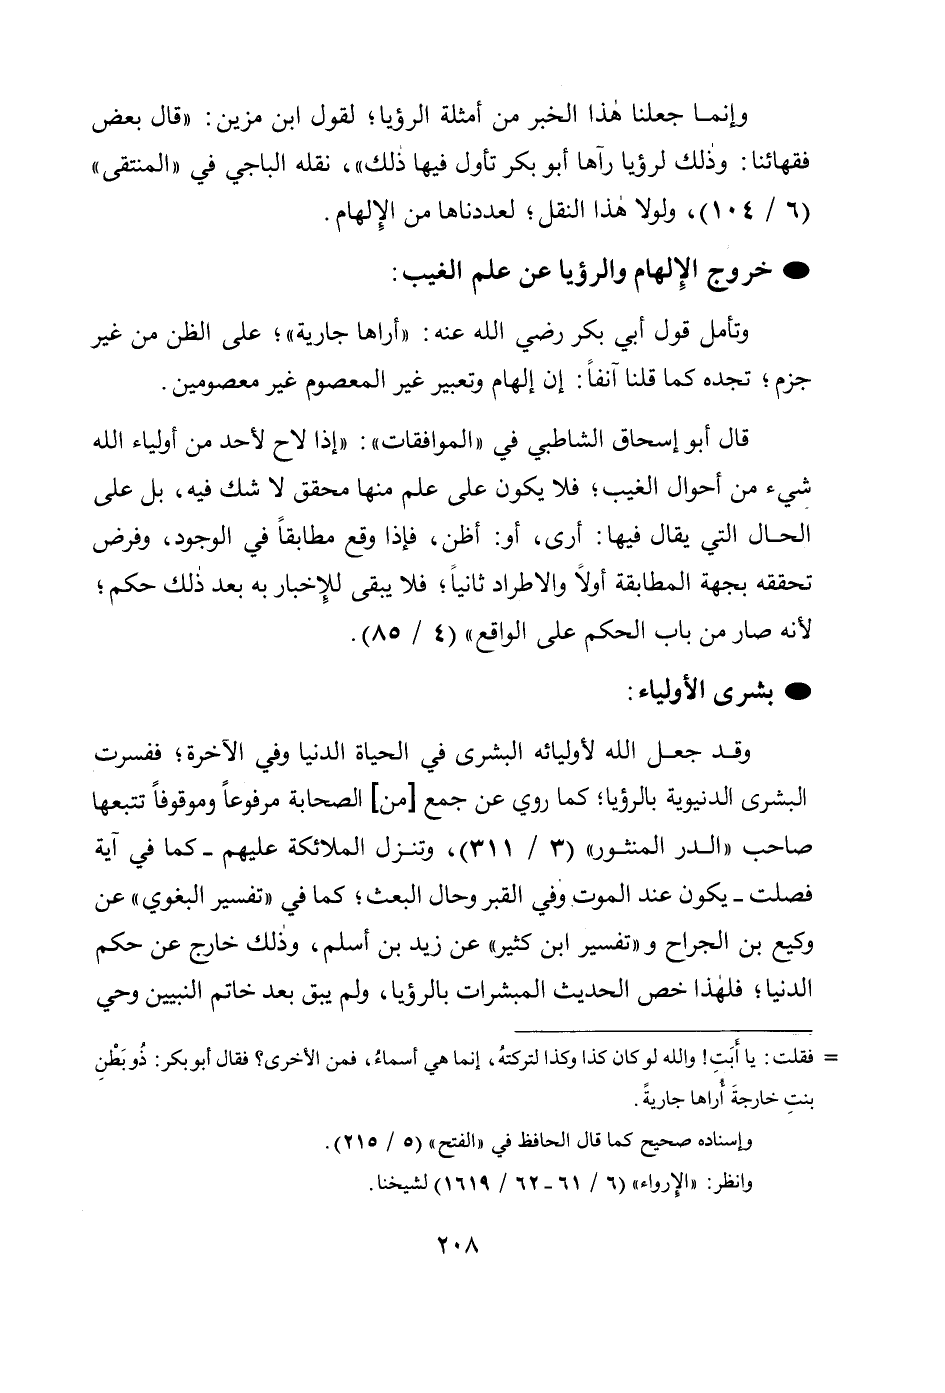 وإنمـا جعلنا هٰذا الخبر من أمثلة الرؤيا؛ لقول ابن مزين: «قال بعض
فقهائنا: وذٰلك لرؤيا رآها أبو بكر تأول فيها ذٰلك»، نقله الباجي في «المنتقى»
(٦ / ١٠٤)، ولولا هٰذا النقل؛ لعددناها من الإلهام.
● خروج الإلهام والرؤيا عن علم الغيب:
وتأمل قول أبي بكر رضي الله عنه: «أراها جارية»؛ على الظن من غير
جزم؛ تجده كما قلنا آنفاً: إن إلهام وتعبير غير المعصوم غير معصومين.
قال أبو إسحاق الشاطبي في «الموافقات»: «إذا لاح لأحد من أولياء الله
شيء من أحوال الغيب؛ فلا يكون على علم منها محقق لا شك فيه، بل على
الحـال التي يقال فيها: أرى، أو: أظن، فإذا وقع مطابقاً في الوجود، وفرض
تحققه بجهة المطابقة أولاً والاطراد ثانياً؛ فلا يبقى للإخبار به بعد ذٰلك حكم؛
لأنه صار من باب الحكم على الواقع» (٤ / ٨٥).
● بشرى الأولياء:
وقـد جعـل الله لأوليائه البشرى في الحياة الدنيا وفي الآخرة؛ ففسرت
البشرى الدنيوية بالرؤيا؛ كما روي عن جمع [من] الصحابة مرفوعاً وموقوفاً تتبعها
صاحب «الـدر المنثـور» (٣ / ٣١١)، وتنـزل الملائكة عليهم ـ كما في آية
فصلت ـ يكون عند الموت وفي القبر وحال البعث؛ كما في «تفسير البغوي» عن
وكيع بن الجراح و «تفسير ابن كثير» عن زيد بن أسلم، وذٰلك خارج عن حكم
الدنيا؛ فلهٰذا خص الحديث المبشرات بالرؤيا، ولم يبق بعد خاتم النبيين وحي
= فقلت: يا أَبَتِ! والله لو كان كذا وكذا لتركتهُ، إنما هي أسماءُ، فمن الأخرى؟ فقال أبو بكر: ذُو بَطْنِ
بنتِ خارجةَ أُراها جاريةً.
وإسناده صحيح كما قال الحافظ في «الفتح» (٥ / ٢١٥).
وانظر: «الإرواء» (٦ / ٦١ ـ ٦٢ / ١٦١٩) لشيخنا.
٢٠٨